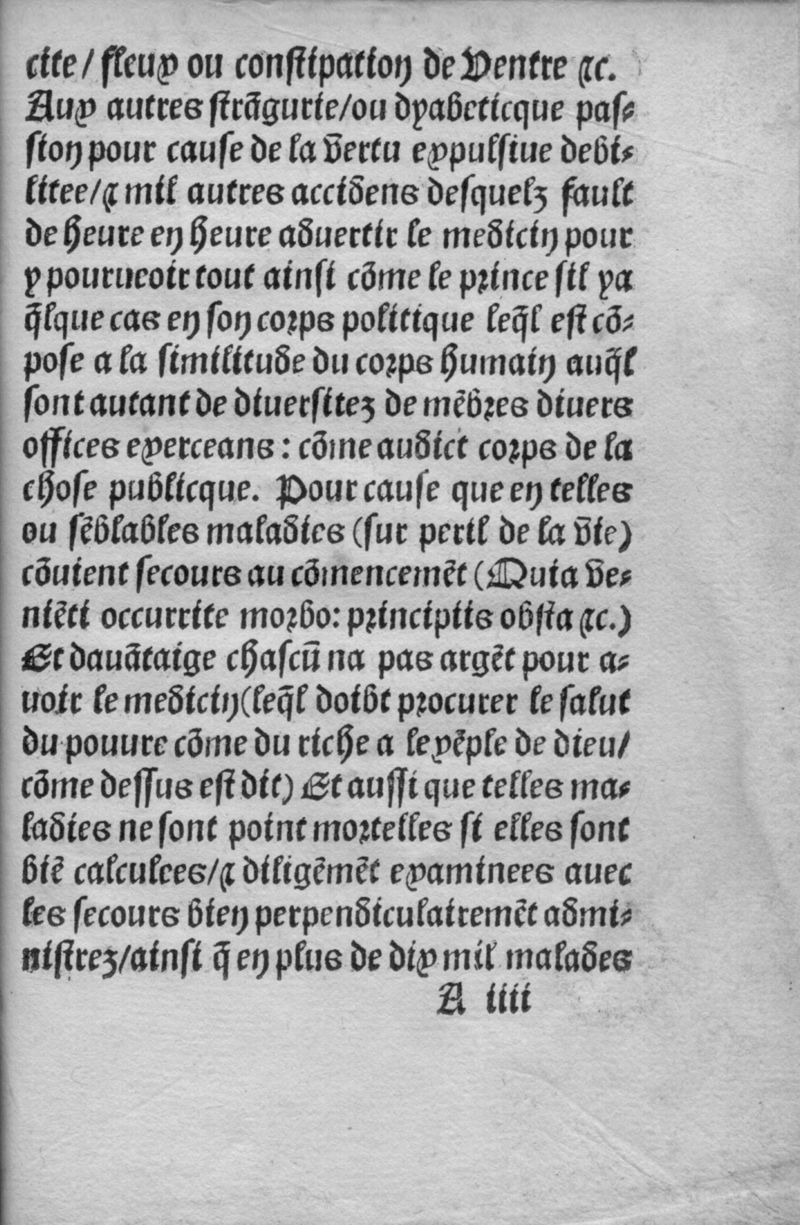 cite/ fleux ou constipation de Ventre ⁊c.
Aux autres strãgurie/ou dyabeticque pas⸗
sion pour cause de la v̄ertu expulsiue debi⸗
litee/⁊ mil autres accidens desquelz fault
de heure en heure aduertir le medicin pour
y pourueoir tout ainsi cõme le prince sil ya
q̃lque cas en son corps politique leq̃l est cõ⸗
pose a la similitude du corps humain auq̃l
sont autant de diuersitez de mẽbres diuers
offices exerceans : cõme audict corps de la
chose publicque. Pour cause que en telles
ou sẽblables maladies (sur peril de la v̄ie)
cõuient secours au cõmencemẽt (Quia ve⸗
niẽti occurrite morbo: principiis obsta ⁊c.)
Et dauãtaige chascũ na pas argẽt pour a⸗
uoir le medicin(leq̃l doibt procurer le salut
du pouure cõme du riche a lexẽple de dieu/
cõme dessus est dit) Et aussi que telles ma⸗
ladies ne sont point mortelles si elles sont
biẽ calculees/⁊ diligẽmẽt examinees auec
les secours bien perpendiculairemẽt admi⸗
nistrez/ainsi q̃ en plus de dix mil malades
A iiii